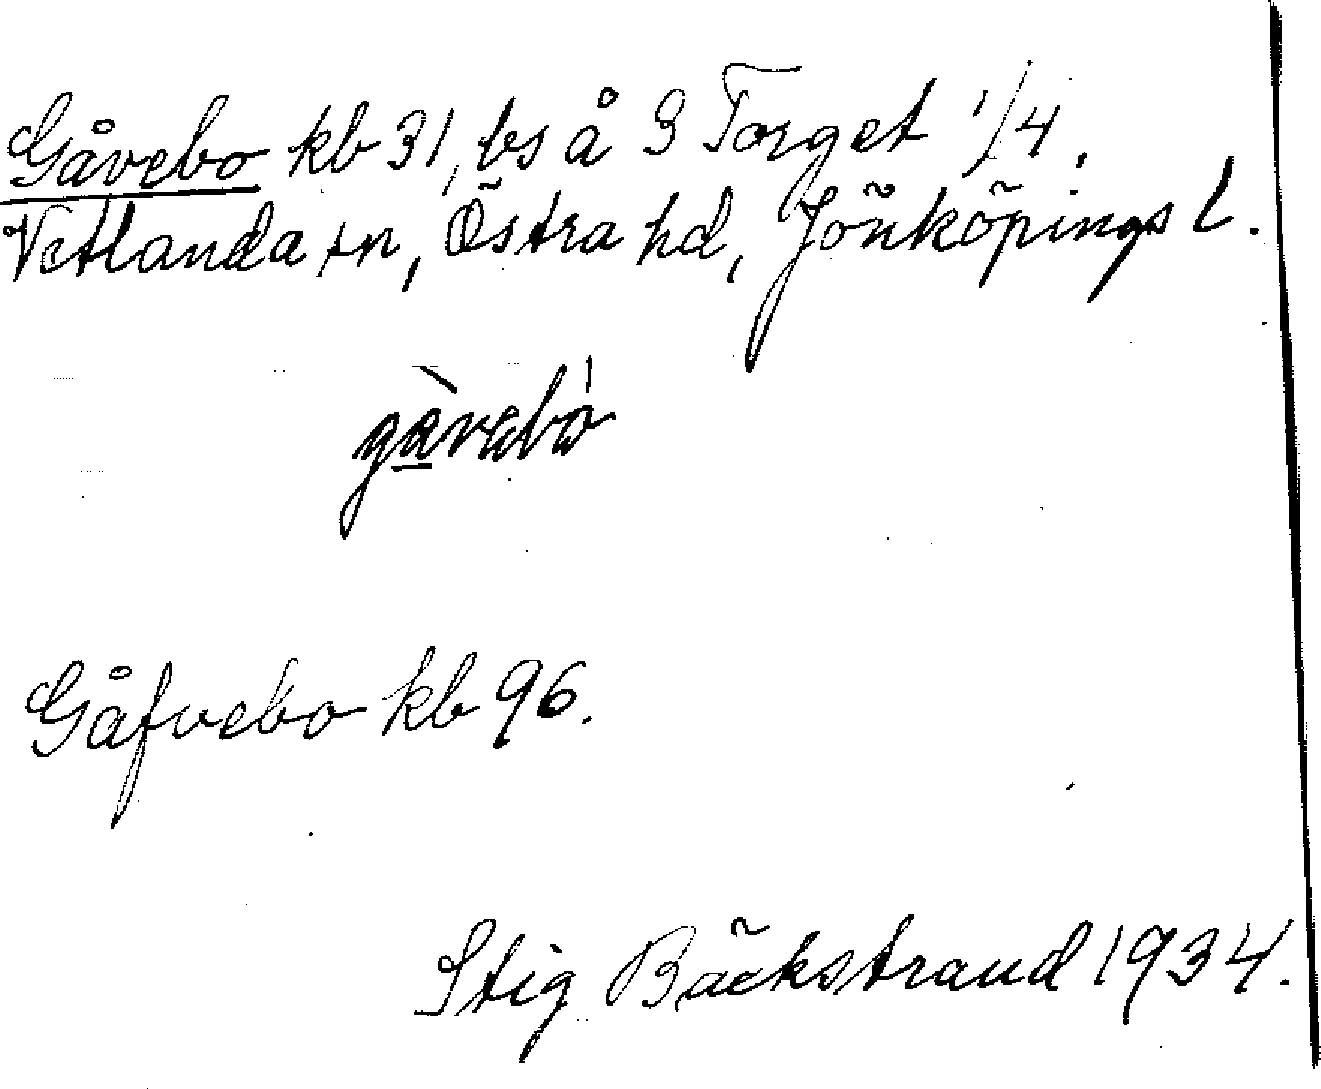 Gåvebo kb 31, bs å 3 Torget 1/4.
Vetlanda sn, Östra hd, Jönköpings L.
gàvebò
Gåfvebo kb 96.
Stig Bäckstrand 1934.